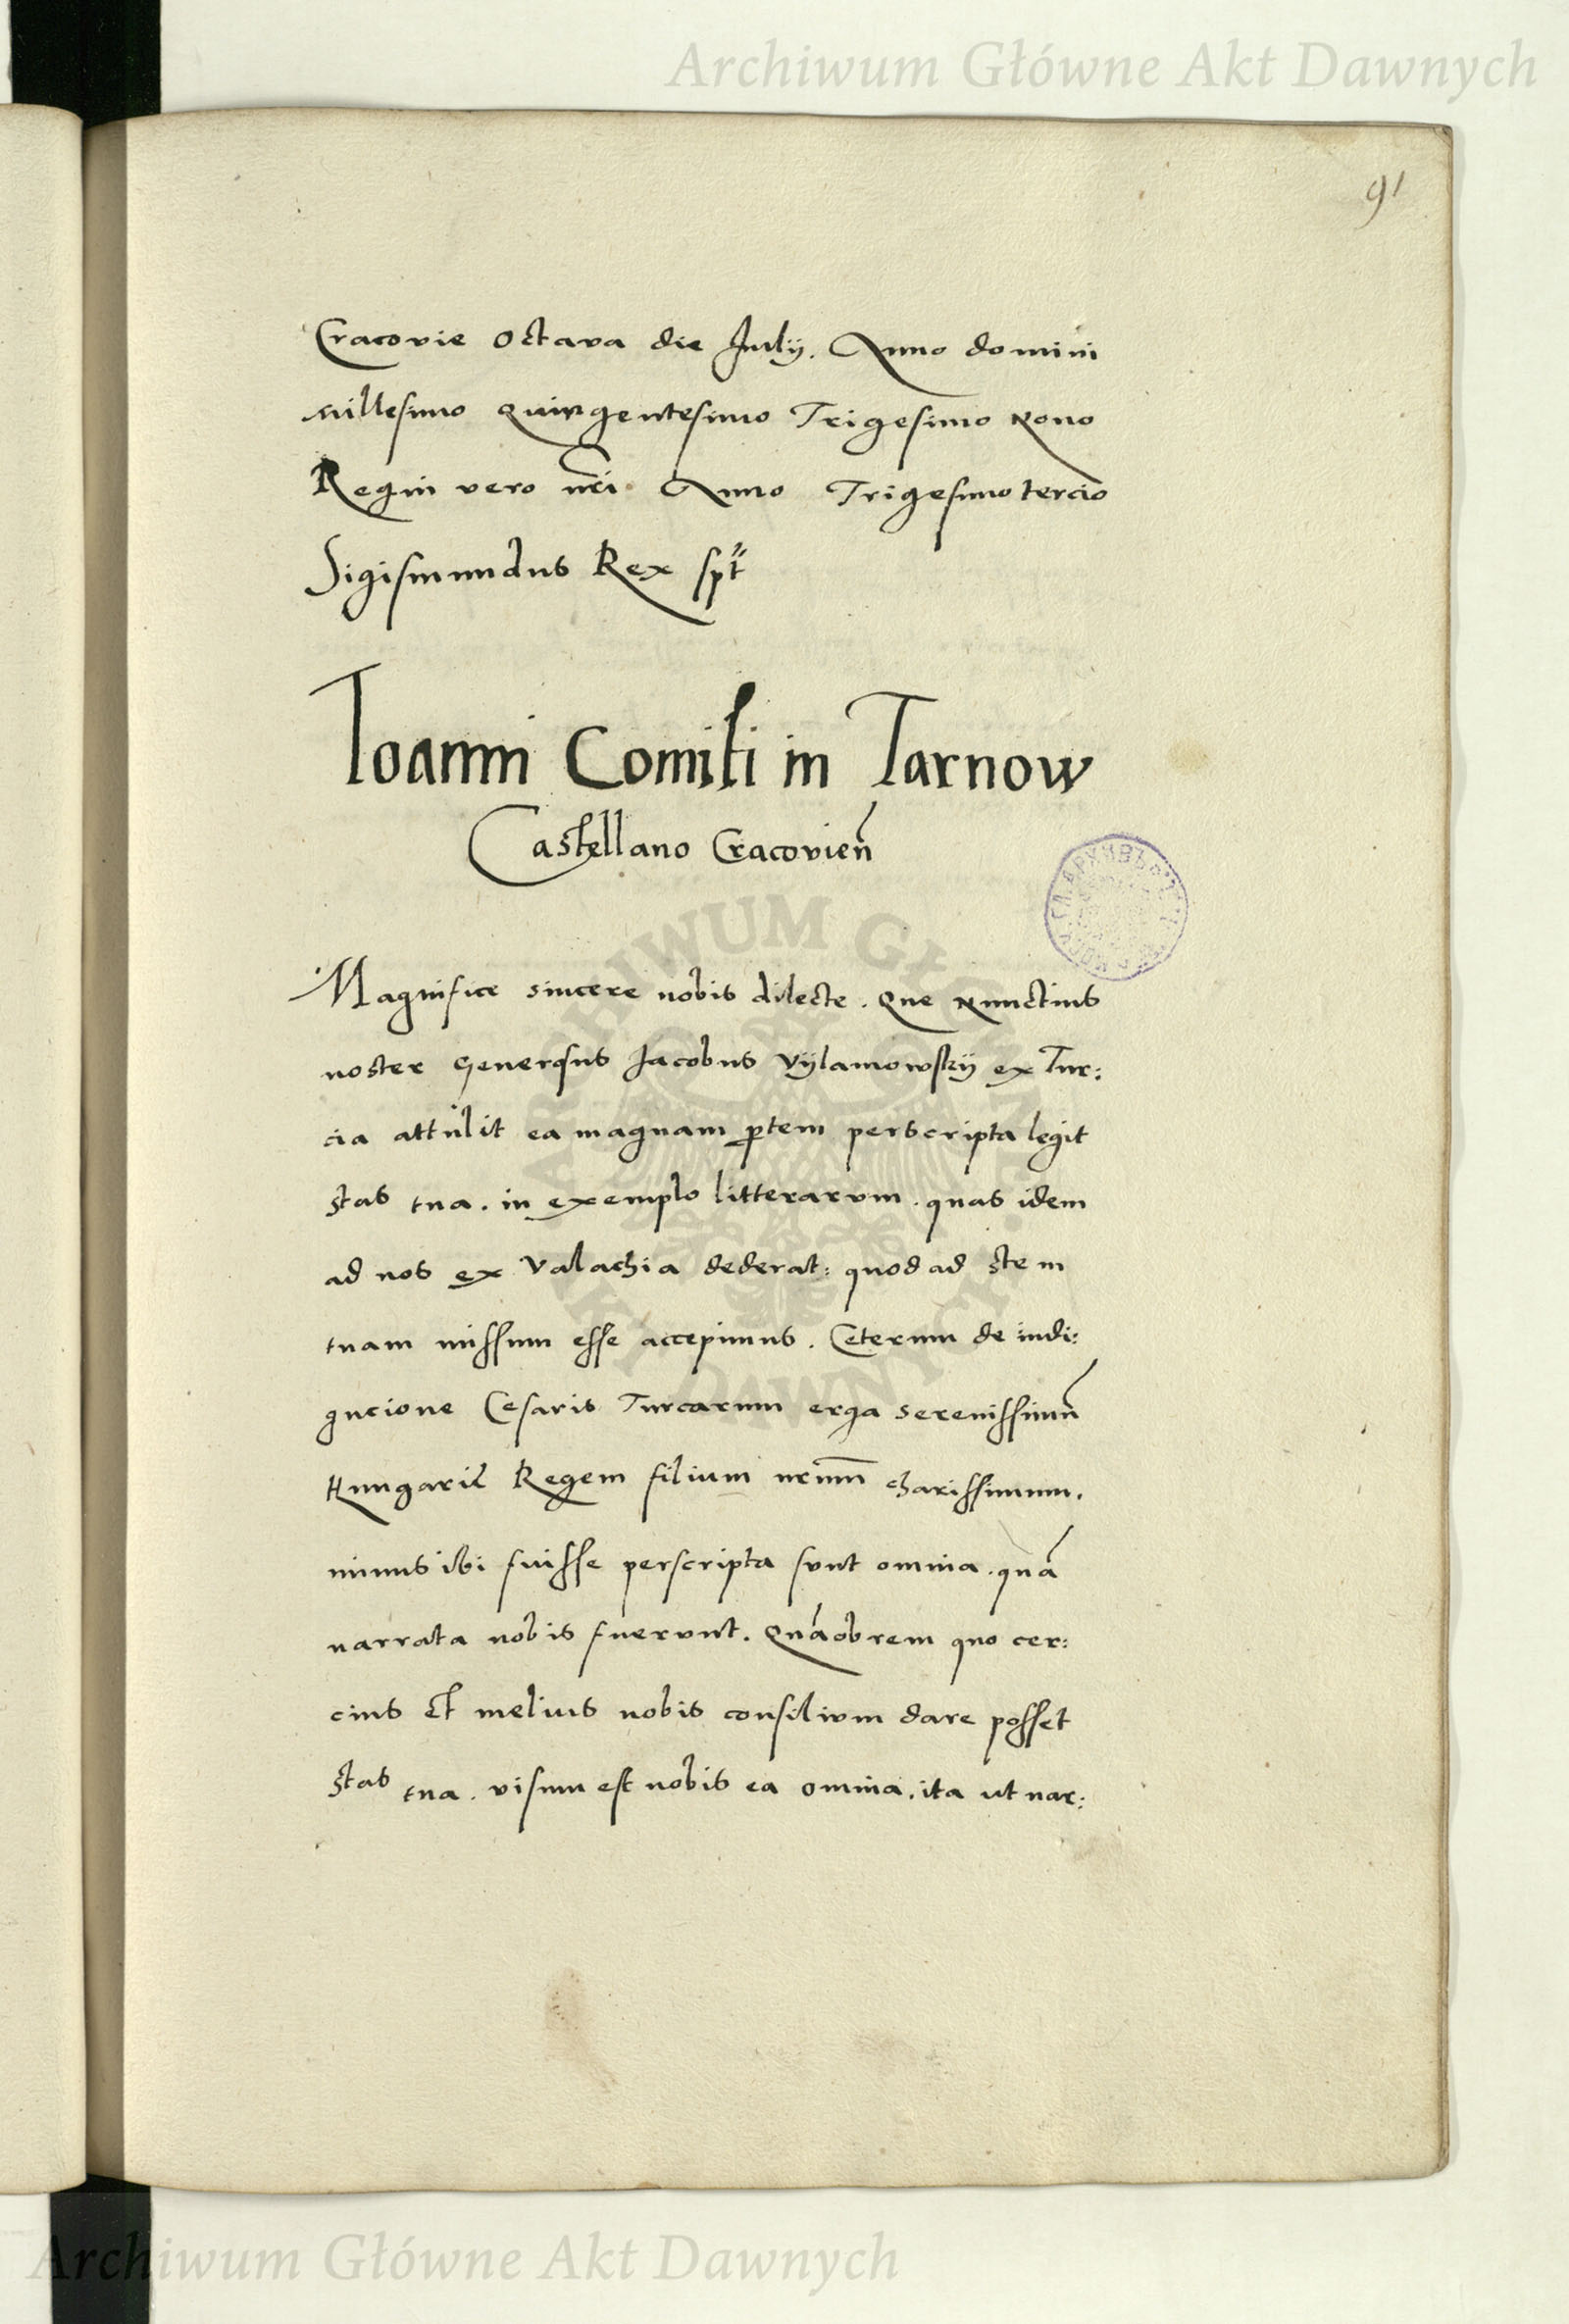 Archiwum Główne Akt Dawnych
91
Cracovie Octava die Julij. Anno domini
millesimo Quingentesimo Trigesimo Nono
Regni vero nri. Anno Trigesimo tercio
Sigismundus Rex spt
Ioanni Comiti in Tarnow
Castellano Cracovien
Magnifice sincere nobis dilecte. Que Nunctius
noster Generosus Jacobus Vÿlamowskÿ ex Tur:
cia attulit ea magnam ptem perscripta legit
stas tua. in exemplo litterarum. quas idem
ad nos ex Valachia dederat: quod ad stem
tuam missum esse accepimus. Ceterum de indi:
gncione Cesaris Turcarum erga serenissimu
Hungarie Regem filium nrum charissimum.
minus ibi fuisse perscripta sunt omnia. qua
narrata nobis fuerunt. Quaobrem quo cer:
cius et melius nobis consilium dare posset
stas tua. visum est nobis ea omnia. ita ut nar:
ARCHIWUM GŁÓWNE
AKT DAWNYCH
Archiwum Główne Akt Dawnych